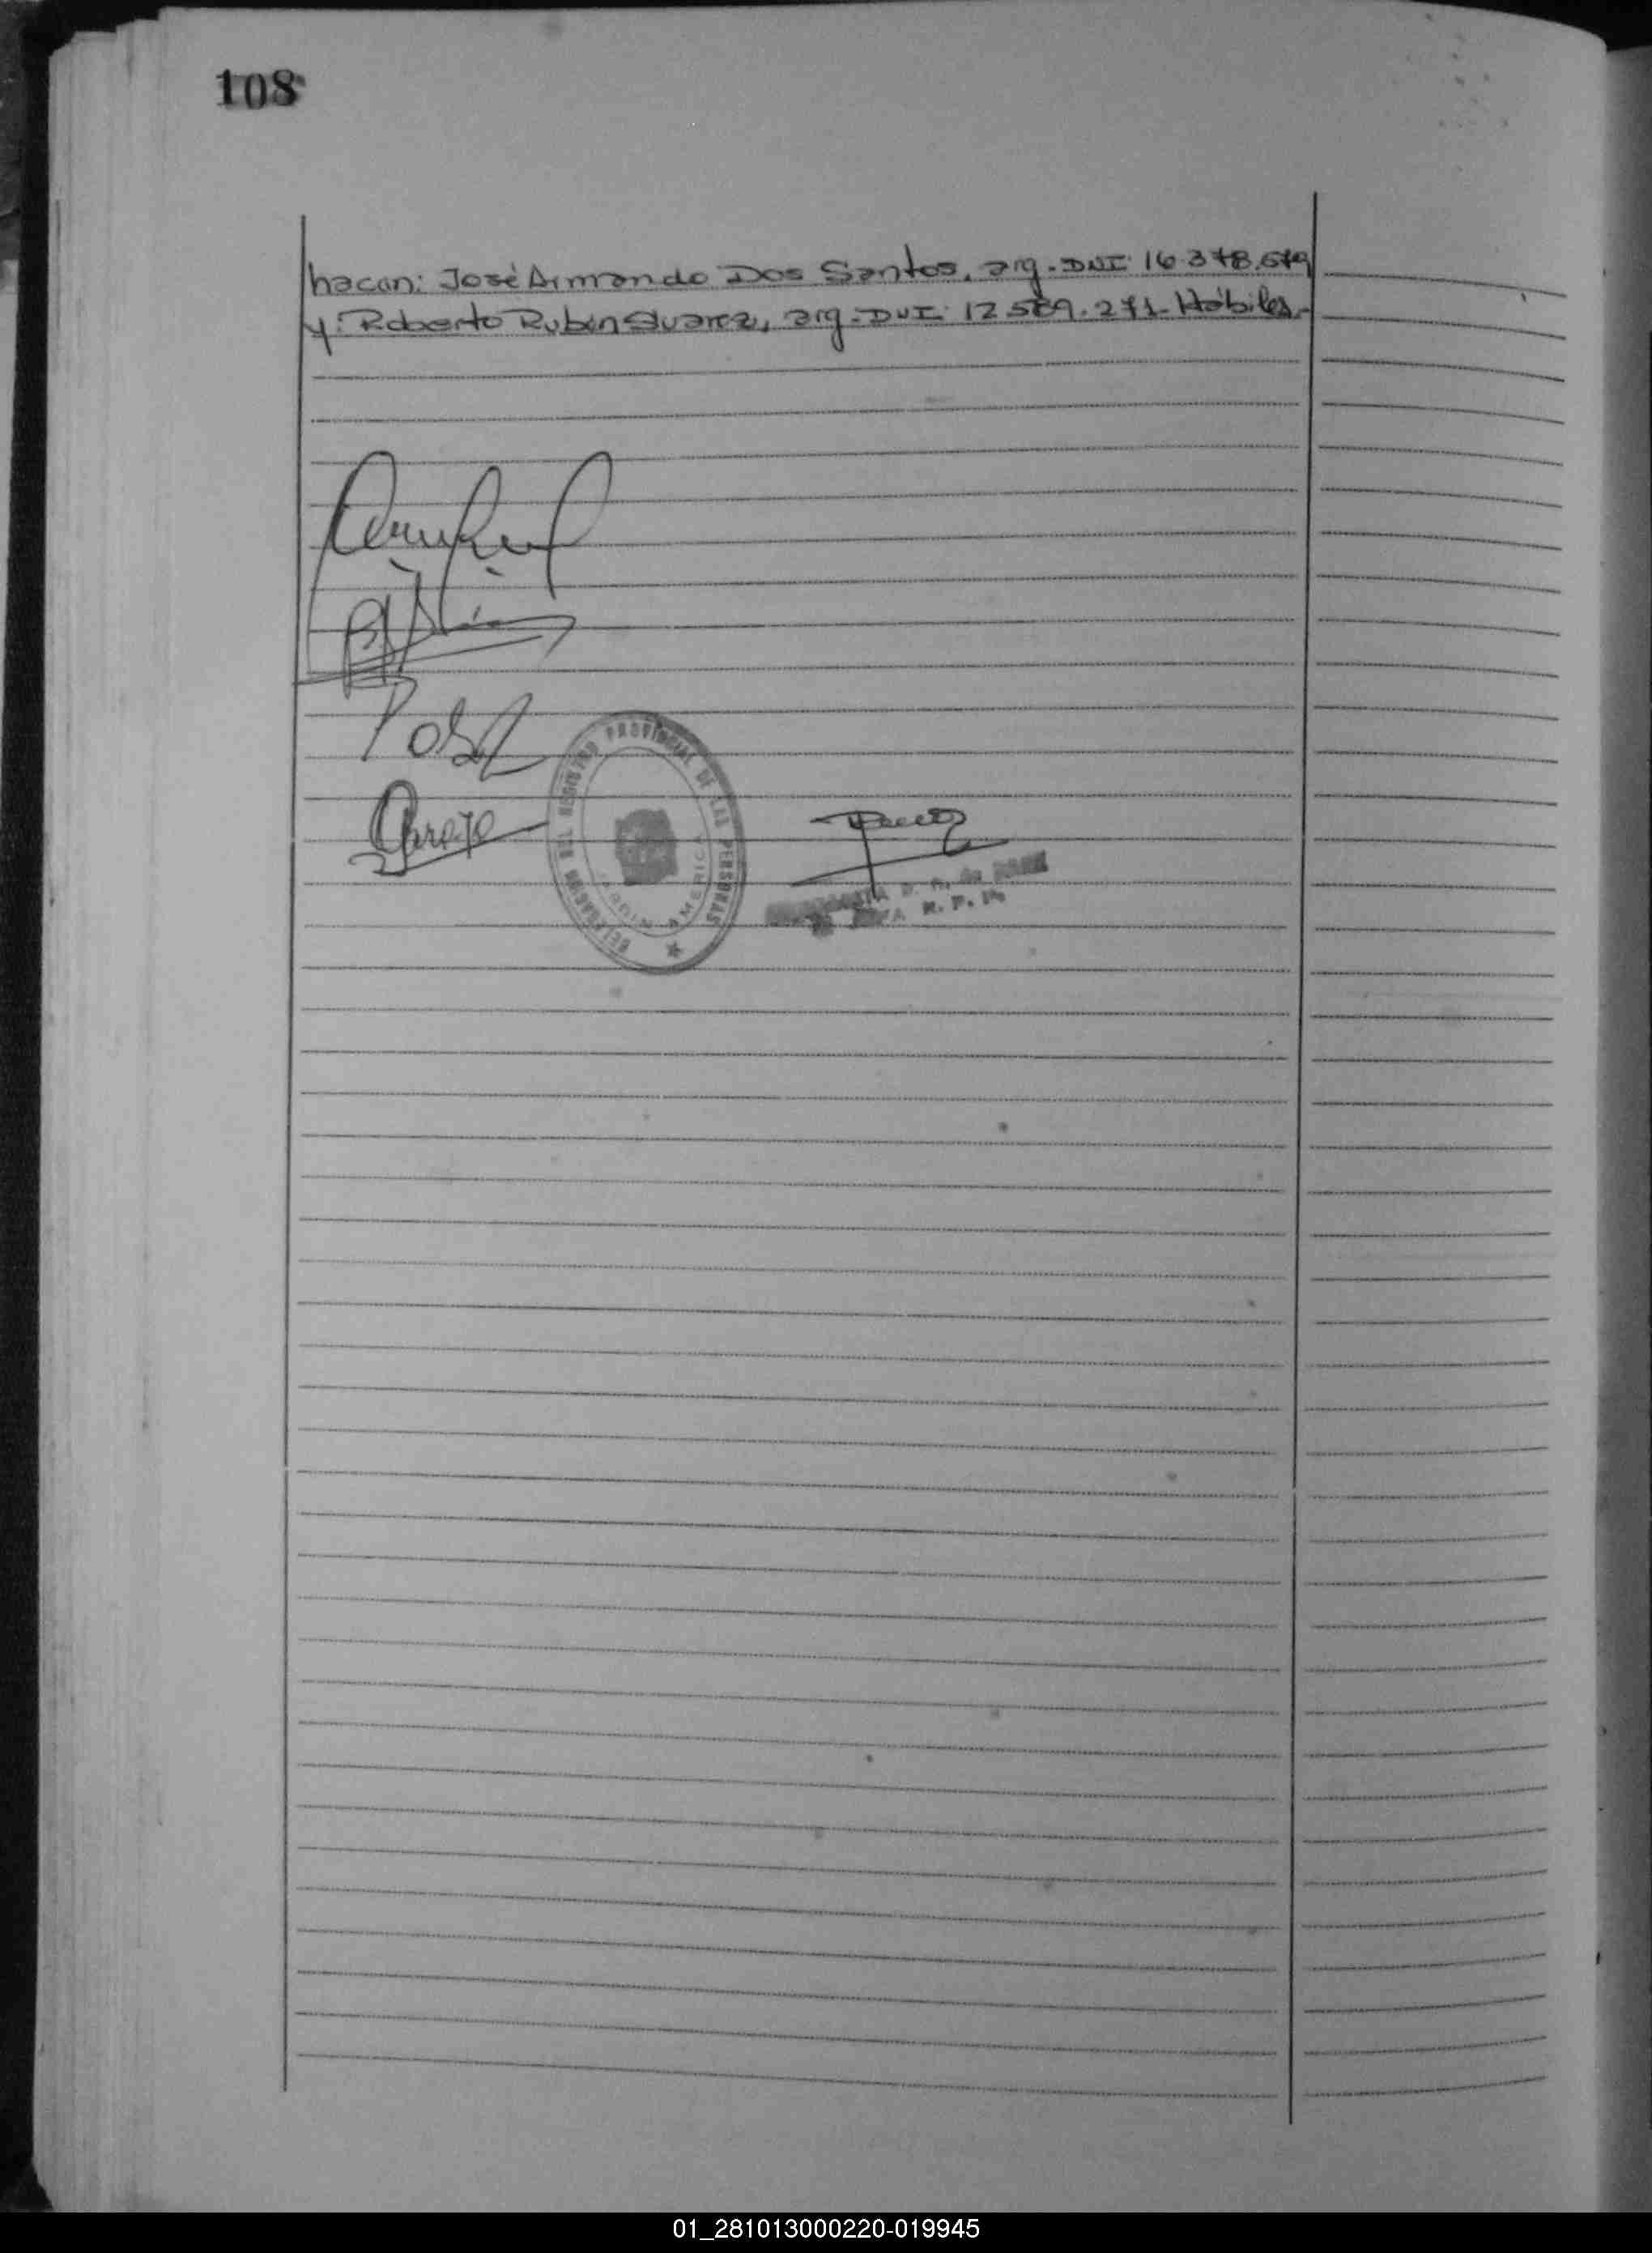 108
hacen: José Armando Dos Santos, arg. DNI: 16.378.579
y: Roberto Ruben Suarez, arg. DNI: 12.589.271. Hábiles.-
DELEGACION DEL REGISTRO PROVINCIAL DE LAS PERSONAS
JARDIN AMERICA
R. P. P.
01_281013000220-019945